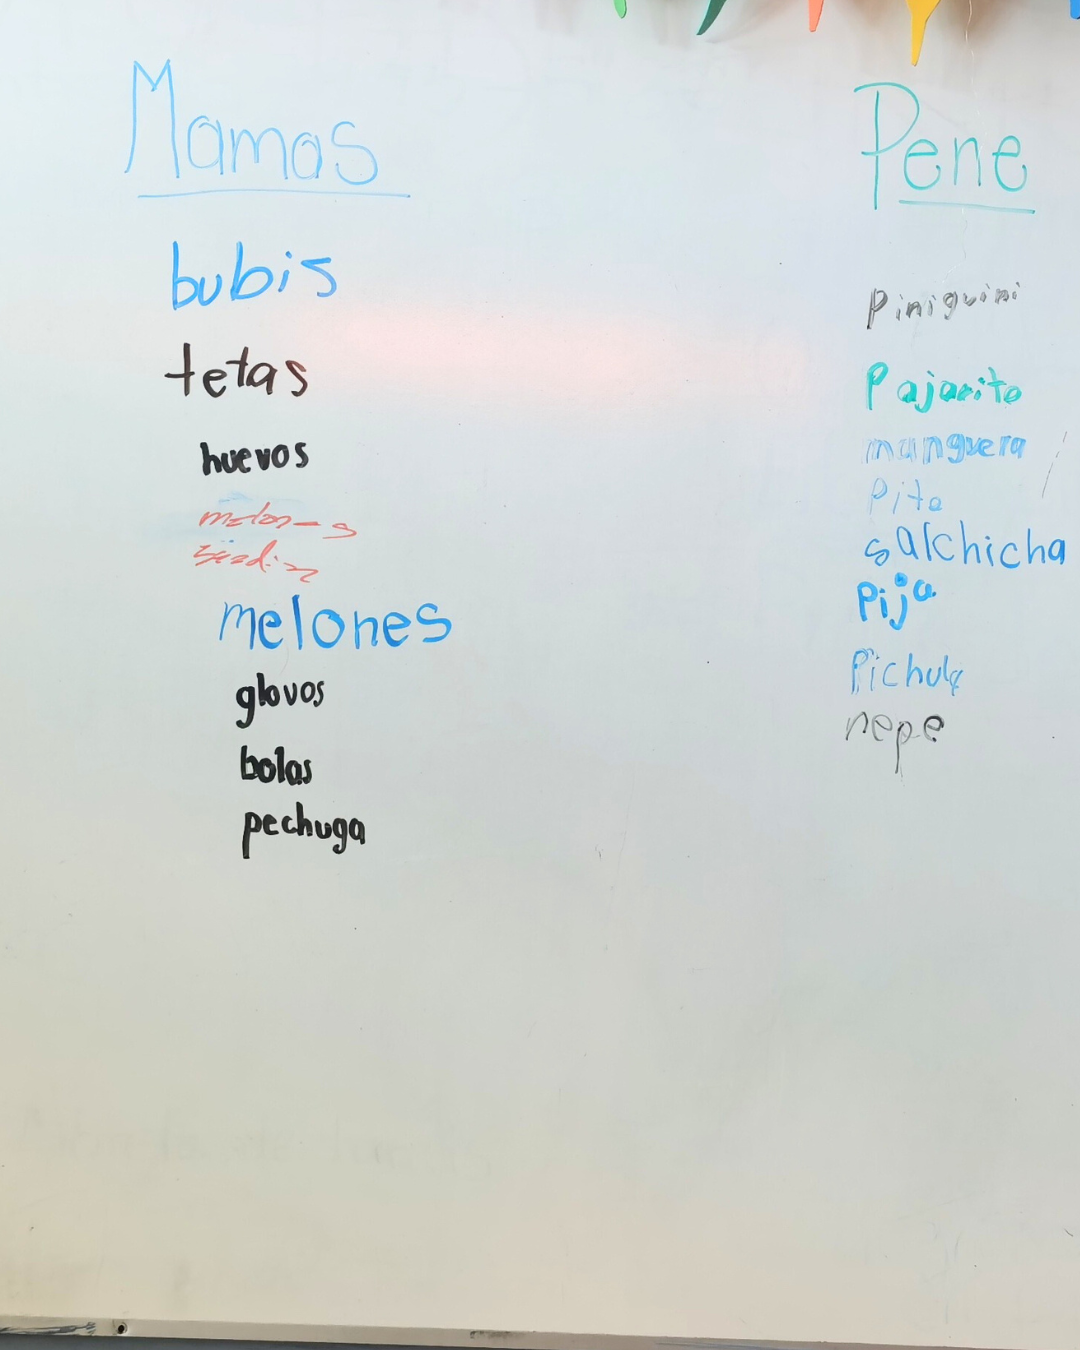 Mamas
bubis
tetas
huevos
melones
melones
glovos
bolas
pechuga
Pene
Piniguini
Pajarito
manguera
Pito
salchicha
Pija
Pichula
nepe